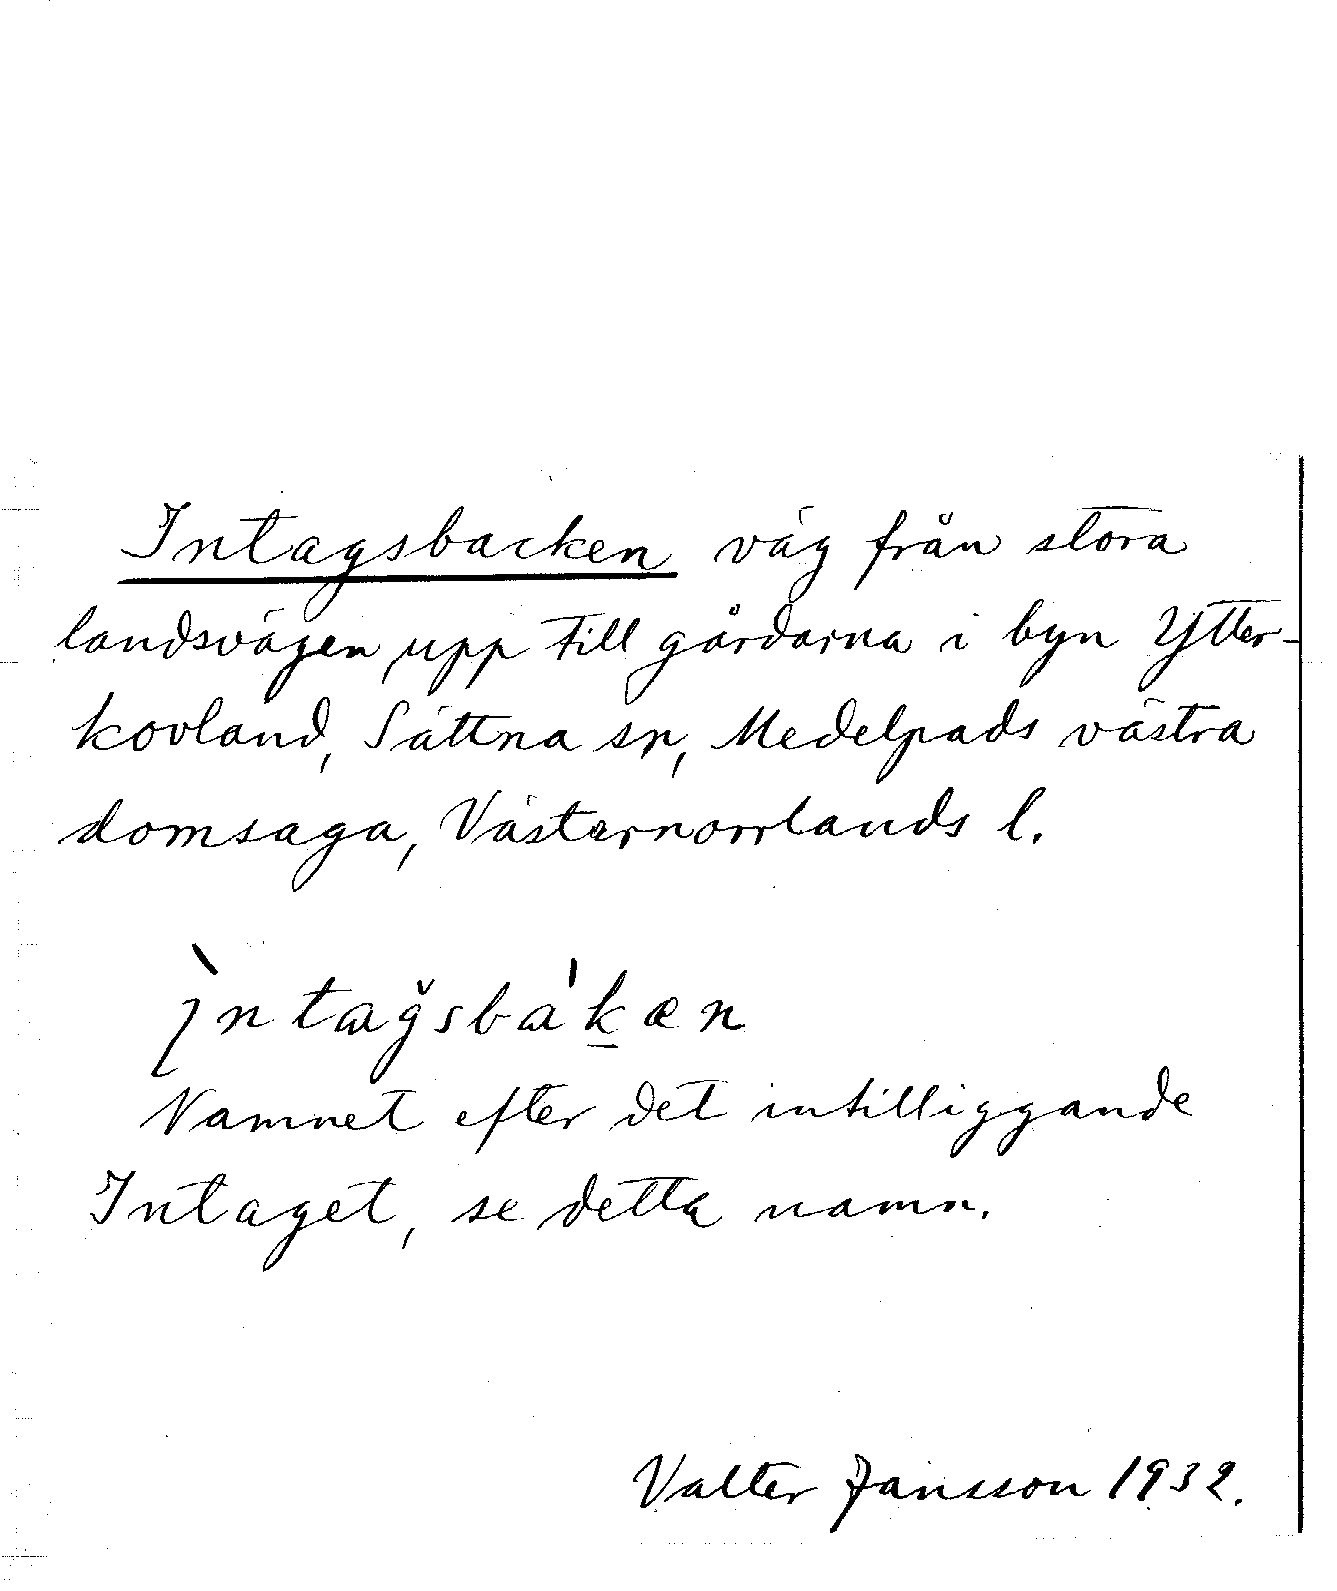 Intagsbacken väg från stora
landsvägen upp till gårdarna i byn Ytter-
kovland, Sättna sn, Medelpads västra
domsaga, Västernorrlands l.
ìntağsba'k̲æn
Namnet efter det intilliggande
Intaget, se detta namn.
Valter Jansson 1932.